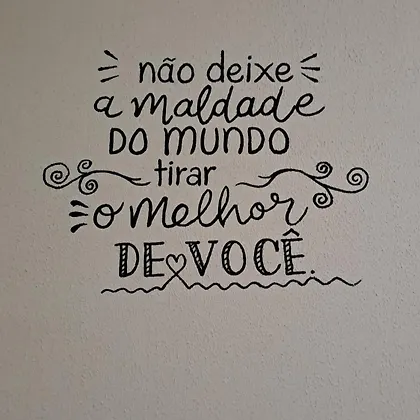 não deixe
a maldade
DO MUNDO
tirar
o melhor
DE VOCÊ.